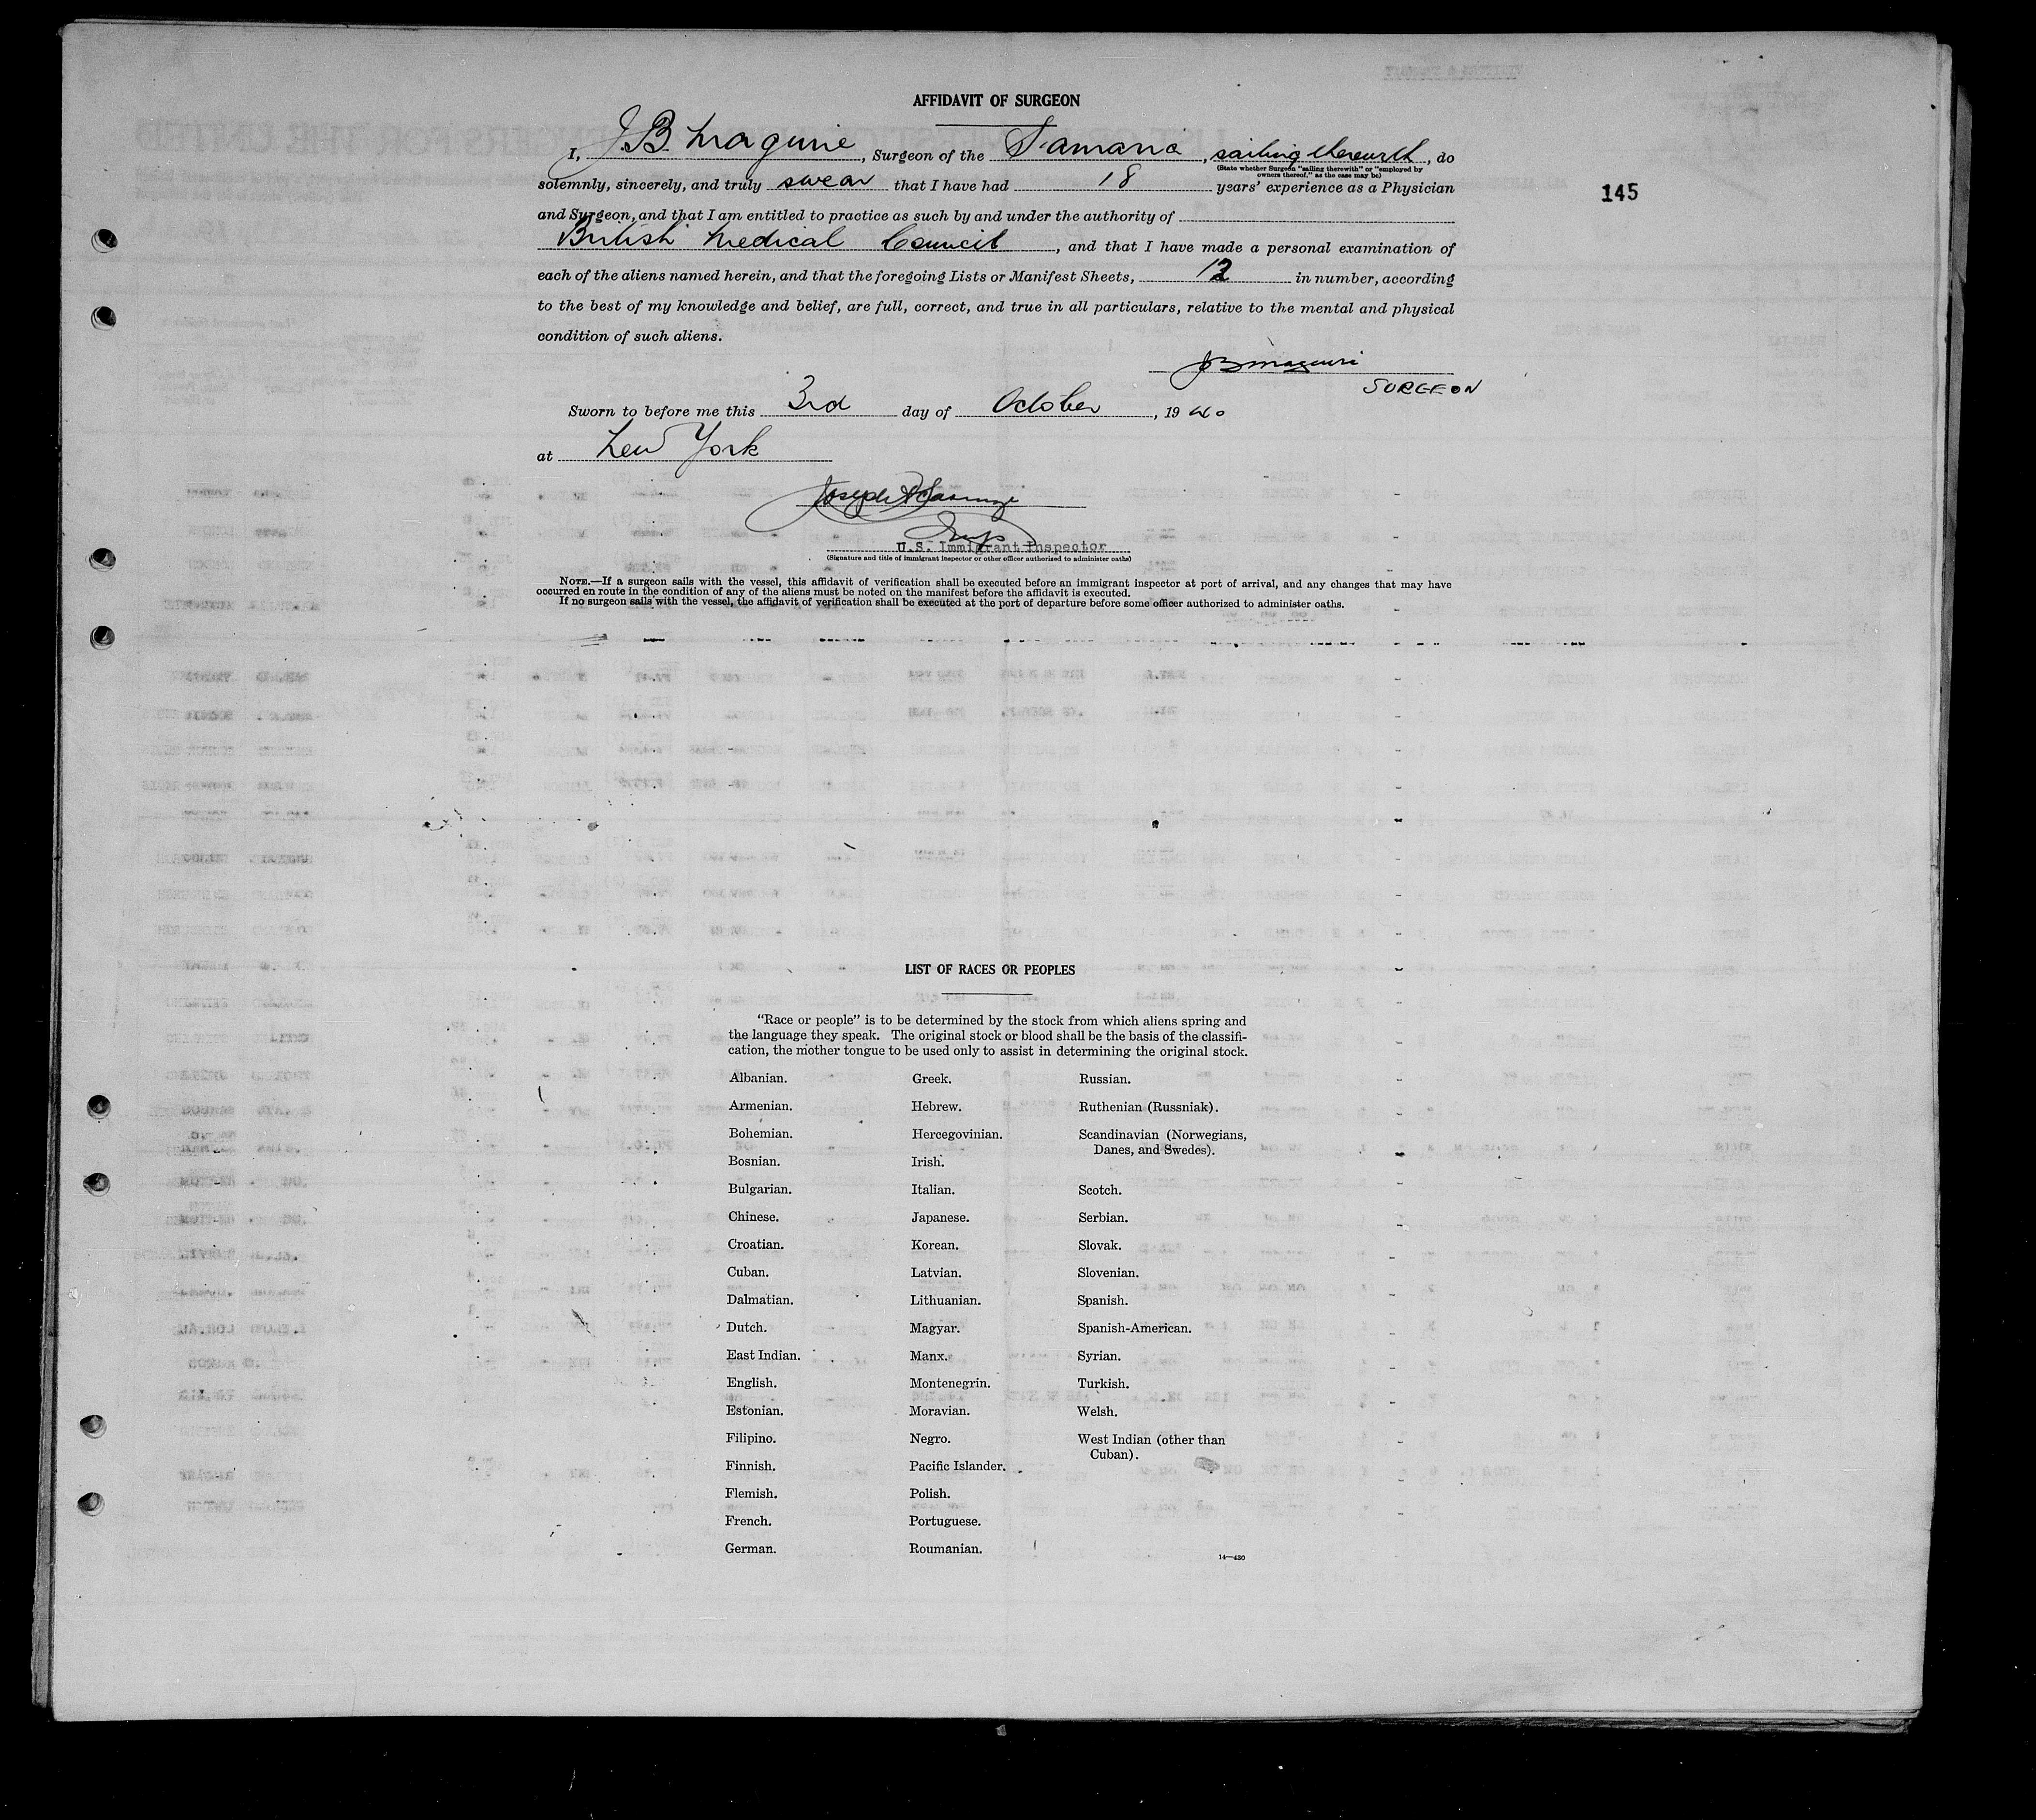 AFFIDAVIT OF SURGEON
I, J.B. Maguire, Surgeon of the Samaria, sailing therewith, do
(State whether Surgeon "sailing therewith" or "employed by
owners thereof," as the case may be)
solemnly, sincerely, and truly swear that I have had 18 years' experience as a Physician
145
and Surgeon, and that I am entitled to practice as such by and under the authority of
British Medical Council, and that I have made a personal examination of
each of the aliens named herein, and that the foregoing Lists or Manifest Sheets, 12 in number, according
to the best of my knowledge and belief, are full, correct, and true in all particulars, relative to the mental and physical
condition of such aliens.
JB Maguire
SURGEON
Sworn to before me this 3rd day of October, 1940
at New York
Joseph
Insp
U.S. Immigrant Inspector
(Signature and title of immigrant inspector or other officer authorized to administer oaths)
NOTE.—If a surgeon sails with the vessel, this affidavit of verification shall be executed before an immigrant inspector at port of arrival, and any changes that may have
occurred en route in the condition of any of the aliens must be noted on the manifest before the affidavit is executed.
If no surgeon sails with the vessel, the affidavit of verification shall be executed at the port of departure before some officer authorized to administer oaths.
LIST OF RACES OR PEOPLES
"Race or people" is to be determined by the stock from which aliens spring and
the language they speak. The original stock or blood shall be the basis of the classifi-
cation, the mother tongue to be used only to assist in determining the original stock.
Albanian.
Armenian.
Bohemian.
Bosnian.
Bulgarian.
Chinese.
Croatian.
Cuban.
Dalmatian.
Dutch.
East Indian.
English.
Estonian.
Filipino.
Finnish.
Flemish.
French.
German.
Greek.
Hebrew.
Hercegovinian.
Irish.
Italian.
Japanese.
Korean.
Latvian.
Lithuanian.
Magyar.
Manx.
Montenegrin.
Moravian.
Negro.
Pacific Islander.
Polish.
Portuguese.
Roumanian.
Russian.
Ruthenian (Russniak).
Scandinavian (Norwegians,
Danes, and Swedes).
Scotch.
Serbian.
Slovak.
Slovenian.
Spanish.
Spanish-American.
Syrian.
Turkish.
Welsh.
West Indian (other than
Cuban).
14—430